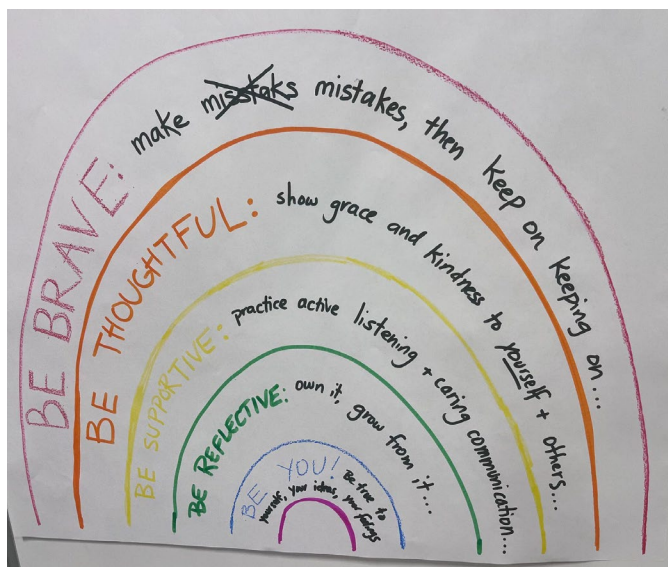 BE BRAVE: make misstaks mistakes, then keep on keeping on...
BE THOUGHTFUL: show grace and kindness to yourself + others...
BE SUPPORTIVE: practice active listening + caring communication...
BE REFLECTIVE: own it, grow from it...
BE YOU! Be true to
yourself, your ideas, your feelings